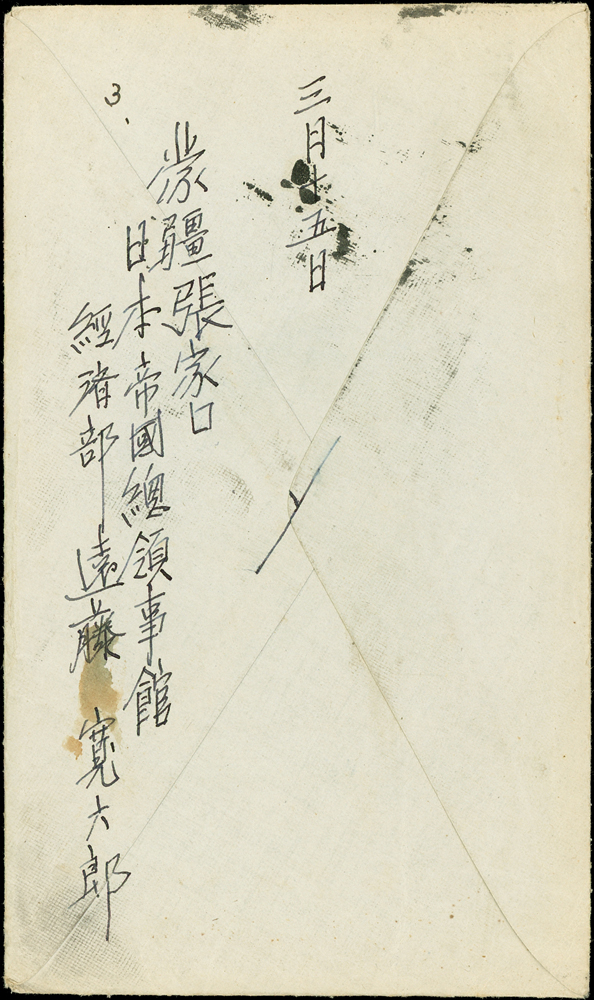 三月十五日
蒙疆張家口
日本帝國總領事館
經濟部 遠藤 寛六郎
3、